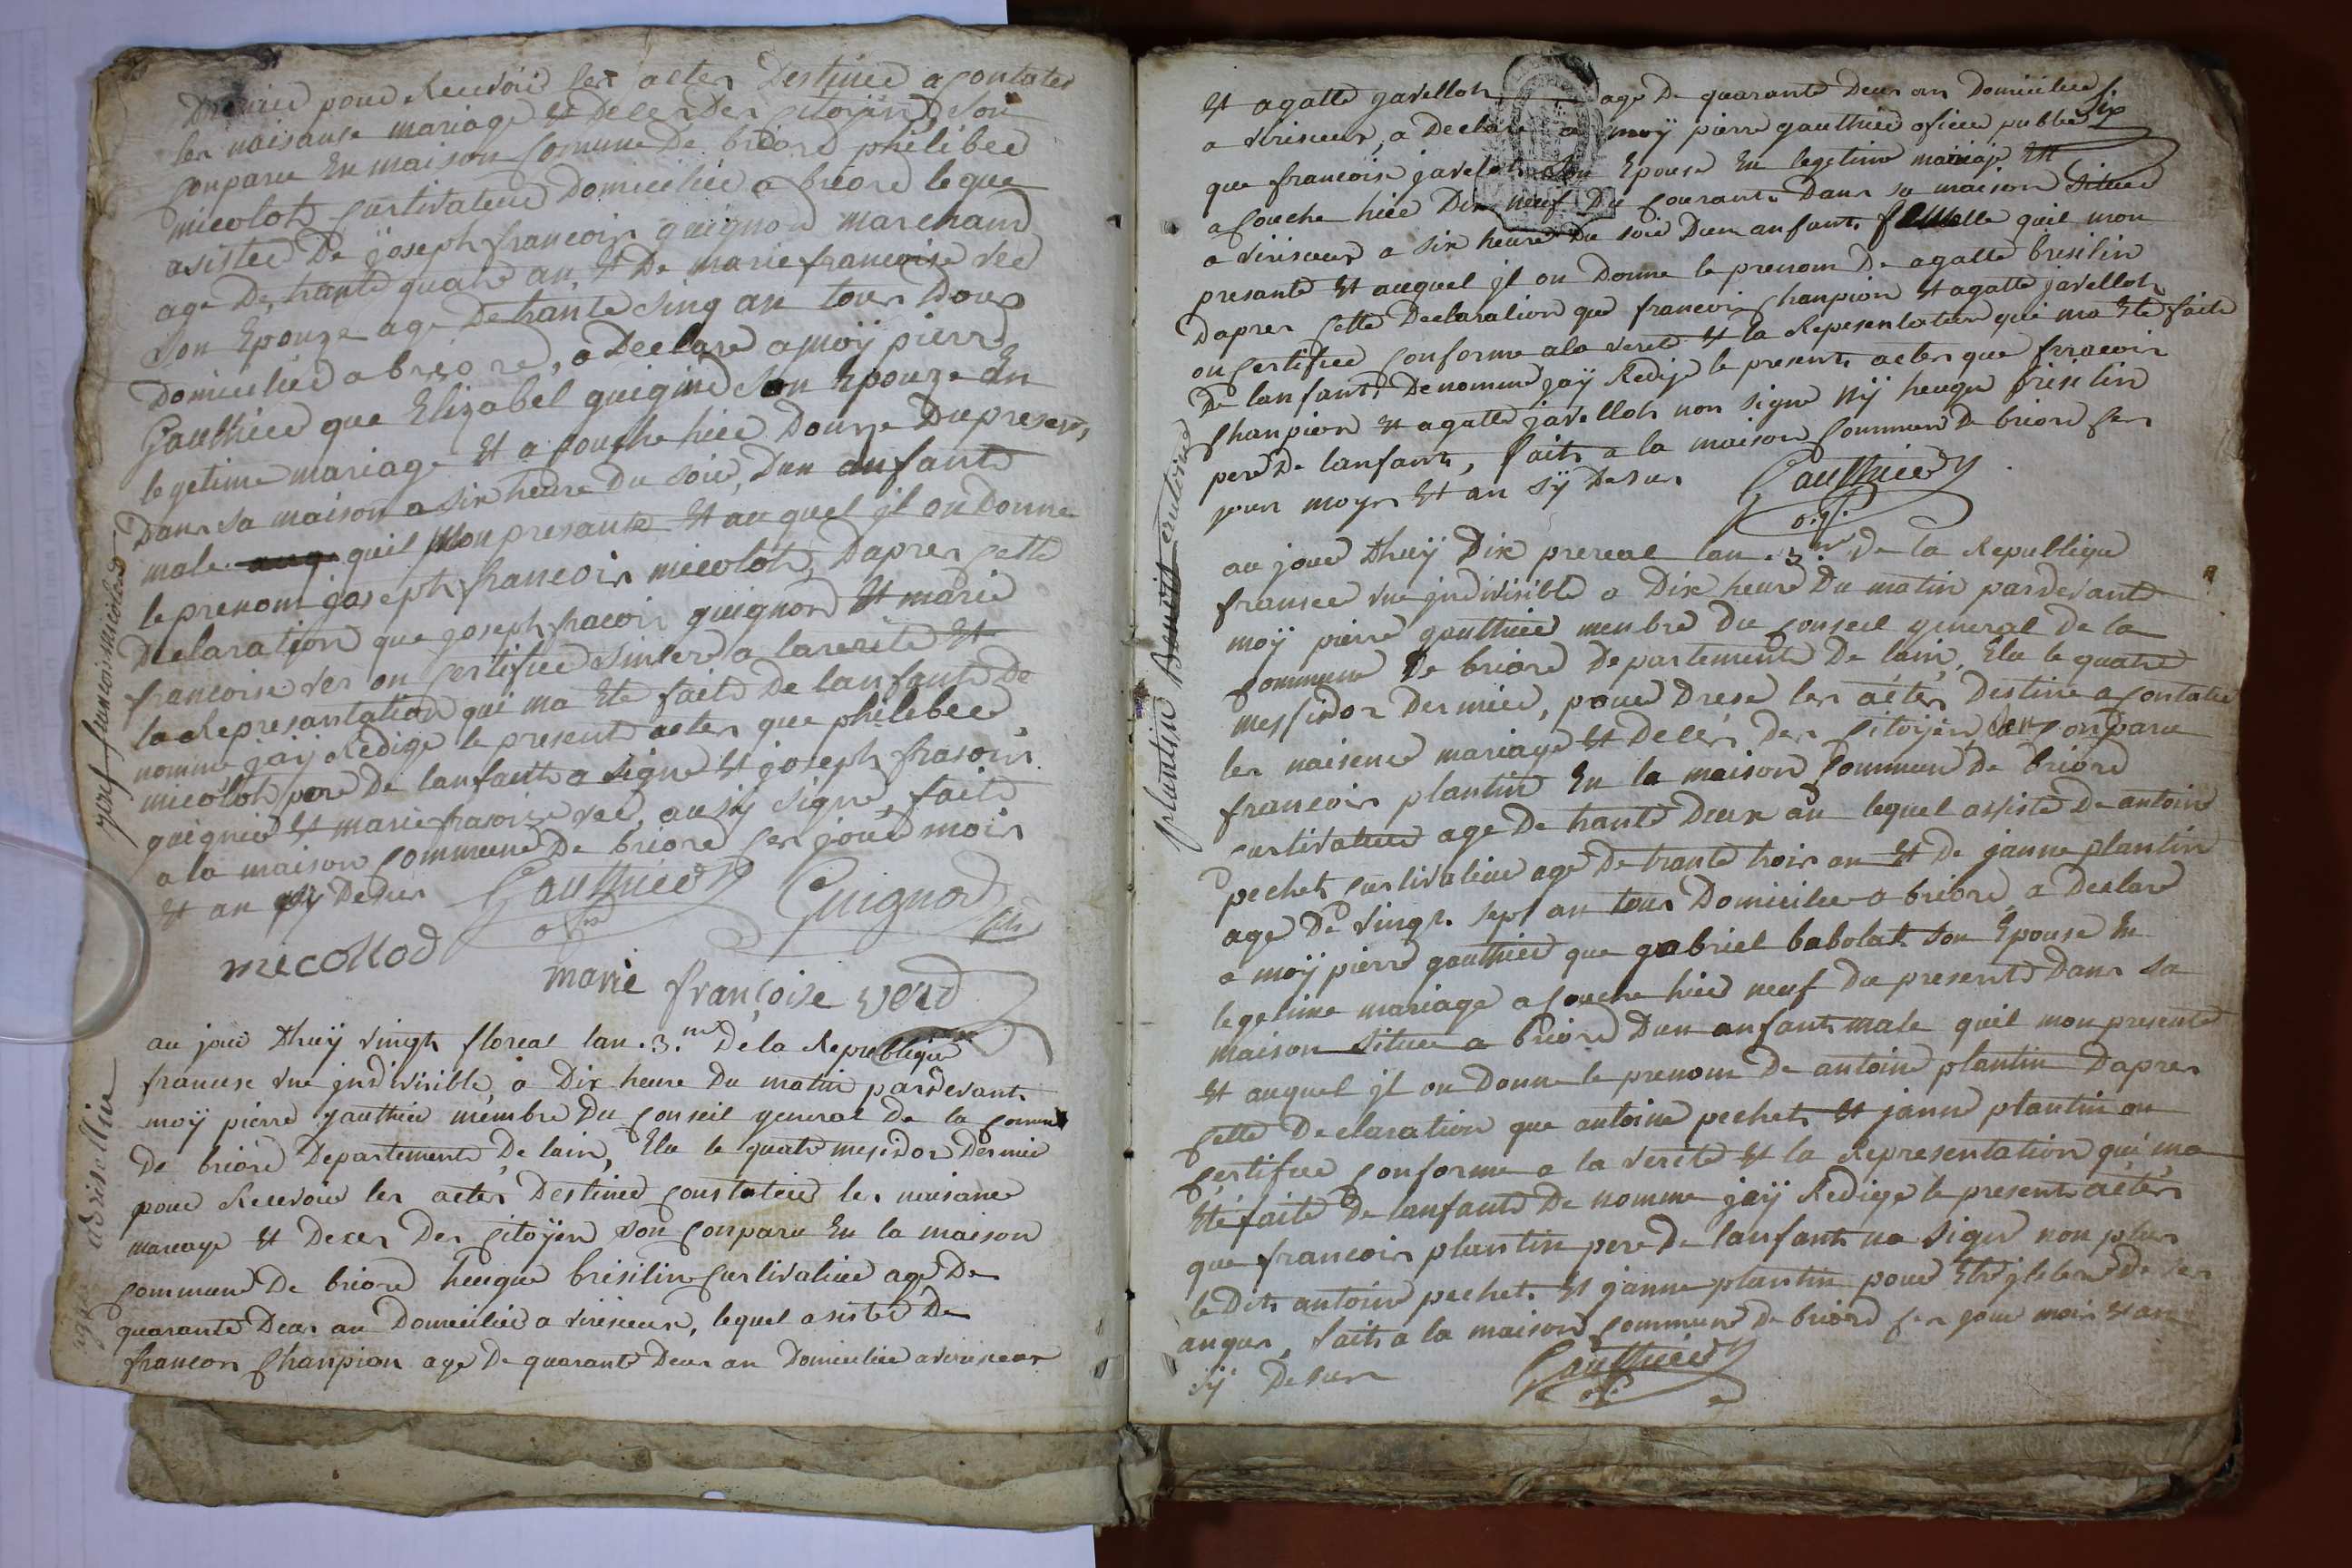 Dernier pour Recevoir les actes Destinée a Contater
les naisanse mariage Et Deces Des Citoyen, Son
Conparu En maison Comune De briord philibee
micoloh Curtivateur Domicilié a briord leque
asistee De joseph francois guignod marchand
age De trante quatre an, Et De marie francoise ver
son Epouze age De trante Sinq an tous Doux
Domicilies a briord, a Declare a moÿ pierre
Gauthier que Elizabel guigue son Epouze En
legetime mariage Et a Couche hier Douze Du presant,
Dans sa maison a six heure Du soir, Dun anfant
male quil mon presante Et au quel jl on Donne
le prenom joseph francois micoloh, Dapres Cette
Declaration que joseph fracois guignod Et marie
francoise ver on Certifiee sincere a laverite Et
la Represantation qui ma Ete faite De lanfant De
nomme jaÿ Redige le present actes que philebee
micoloh pere De lanfant a signe Et joseph frasois
guignier Et marie frasoise ver, ausÿ signe, fait
a la maison Commune De briord Ses jour mois
Et an sÿ Desus Gauthier Guignod
ofr fils
micollod
marie françoise verd
josef francois micolod
au jour dhuÿ vingt floreal lan .3.me De la Republique
francese une jndivisible, a Dix heure Du matin pardevant
moÿ pierre gauthier membre Du Conseil general De la Comune
De briord Departement De lain, Elu le quatre mesidor Dernier
pour Recevoir les actes Destinee Constateir les naisance
mareage Et Deces Des Citoÿen Son Conparu En la maison
Commune De briord heugue brisilin Curtivateur age De
quarante Deux an Domicilié a virieux, lequel asistes De
francois Chanpion age De quarante Deux an Domicilie a
agat brisellin
Et agatte javelloh age De quarante Deux an Domiciliée
Six
a virieux, a Declare a moÿ pierre gauthier oficier public
que francoise javeloh son Epouse En legetime mariage Et
a Couche hier Dix neuf Du Courant Dans sa maison Situee
a virieux a six heure Du soir Dun anfant femelle quil mon
presante Et auquel jl on Donne le prenom De agatte brisilin
Dapres Cette Declaration que francois Chanpion Et agatte javelloh
on Certifiee Conforme ala verete Et la Representation qui ma Ete faite
De lanfant Denomme jaÿ Redige le present actes que fracois
Chanpion Et agatte javelloh non signe Nÿ heugue brisilin
pere De lanfant, fait a la maison Commune De briord Ses
jour moys Et an sÿ Desus Gauthier
o.f.
plantin antoine
au jour dhuÿ Dix prereal lan .3.me De la Republique
fransee une jndivisible a Dix heure Du matin pardevant
moÿ pierre gauthier menbre Du Conseil general De la
Commune De briord Departement De lain, Elu le quatre
messidor Dernier, pour Drese les actes Destine a Contater
les naisence mariage Et Deces Des Citoÿen, Conparu
francois plantin En la maison Commune De briord
Curtivateur age De trante Deux an lequel assiste De antoine
pechet Curtivateur age De trante trois an Et De janne plantin
age De vingt sept an tous Domicilee a briord, a Declare
a moÿ pierre gauthier que gabriel babolat son Epouse En
legetime mariage a Couche hier neuf Du present Dans sa
maison situee a briord Dun anfant male quil mon presente
Et auquel jl on Donne le prenom De antoine plantin Dapres
Cette Declaration que antoine pechet Et janne plantin on
Certifiee Conforme a la verete Et la Representation qui ma
Ete faite De lanfant De nomme jaÿ Redige le present actes
que francois plantin pere De lanfant na signe non plus
le Dit antoine pechet Et janne plantin pour Etre
fait a la maison Commune De briord Ses jour mois Et an
sÿ Desus Gauthier
of.